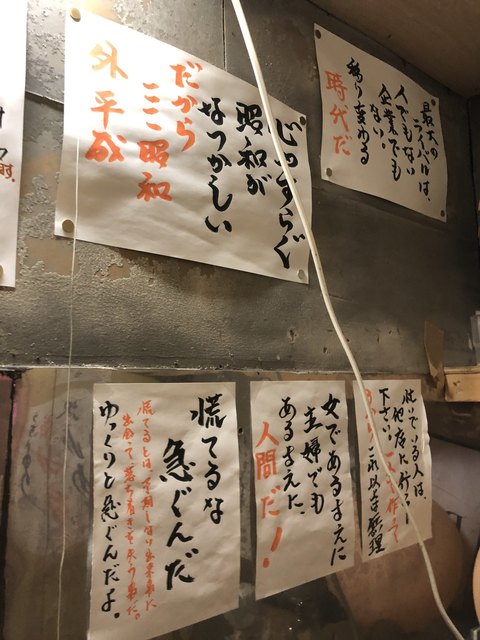 最大の
ライバルは、
人でもない
企業でも
ない。
移り変わる
時代だ
心やすらぐ
昭和が
なつかしい
だから
ここ昭和
外 平成
急いでいる人は、
他店に行って
下さい。
これ以上無理
女であるまえに
主婦でも
あるまえに、
人間だ!!
慌てるな
急ぐんだ
慌てるとは、予期しない出来事に
出会って、落ち着きを失う事だ。
ゆっくりと急ぐんだよ。